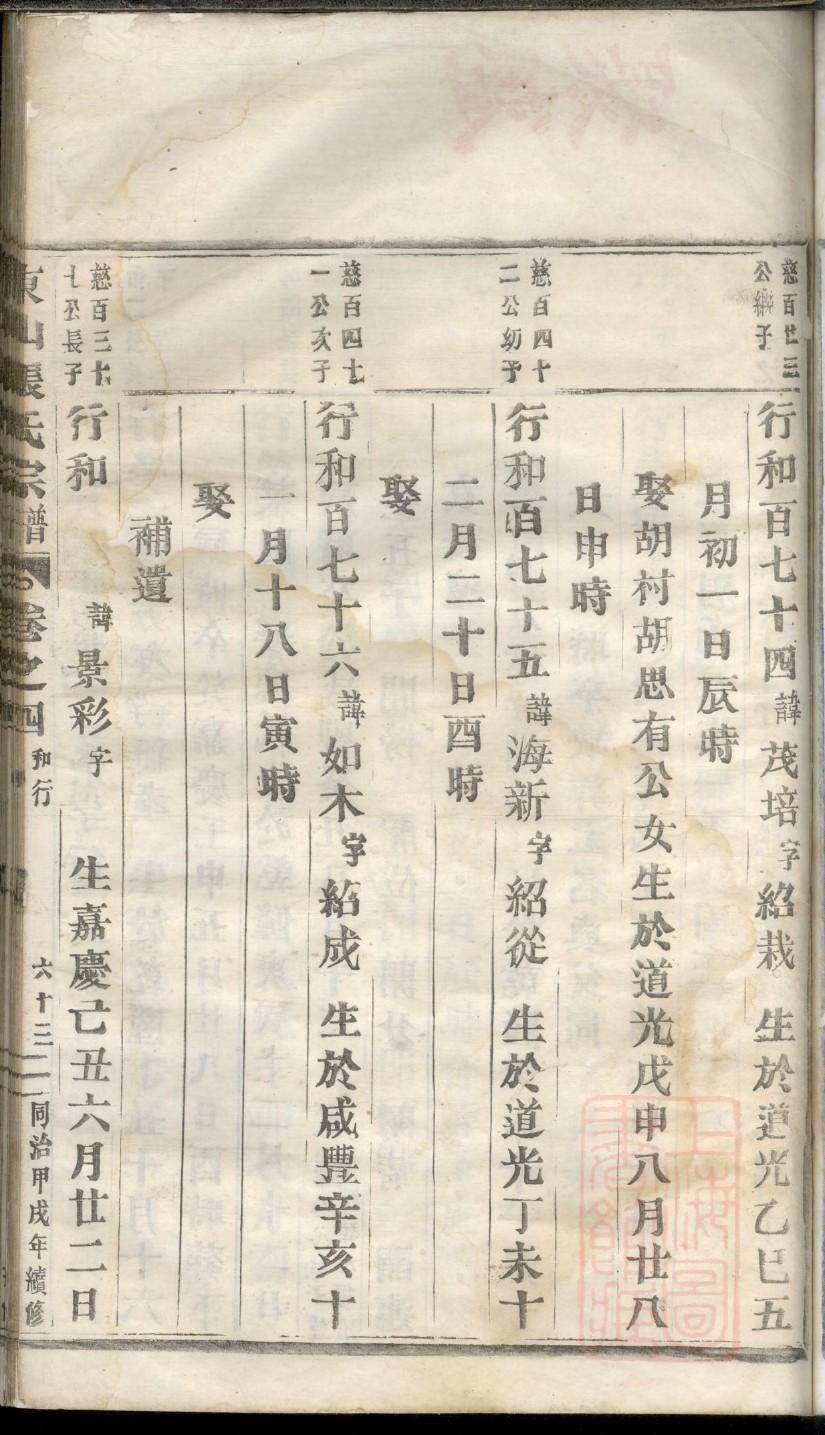 慈百廿三
公繼子
行和百七十四諱茂培字紹栽 生於道光乙巳五
月初一日辰時
娶胡村胡思有公女生於道光戊申八月廿八
日申時
慈百四十
二公幼子
行和百七十五諱海新字紹從 生於道光丁未十
二月二十日酉時
娶
慈百四七
一公次子
行和百七十六諱如木字紹成 生於咸豐辛亥十
一月十八日寅時
娶
補遺
慈百三十
七公長子
行和 諱景彩字 生嘉慶己丑六月廿二日
東山張氏宗譜 卷之四 和行 六十三 同治甲戌年續修